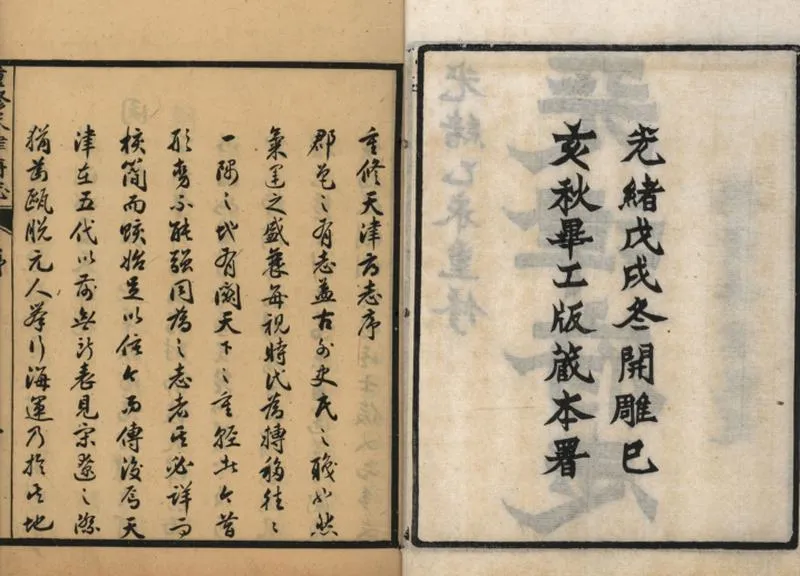 光緒戊戌冬開雕巳
亥秋畢工版藏本署
光緒乙未重修
重修天津府志序
郡邑之有志蓋古外史氏之職也然
氣運之盛衰每視時代為轉移往往
一隅之地有關天下之重輕此今昔
形勢不能強同為之志者其必詳而
核簡而賅始足以信今而傳後焉天
津在五代以前無所表見宋遼之際
猶為甌脫元人舉行海運乃於其地
重修天津府志 序